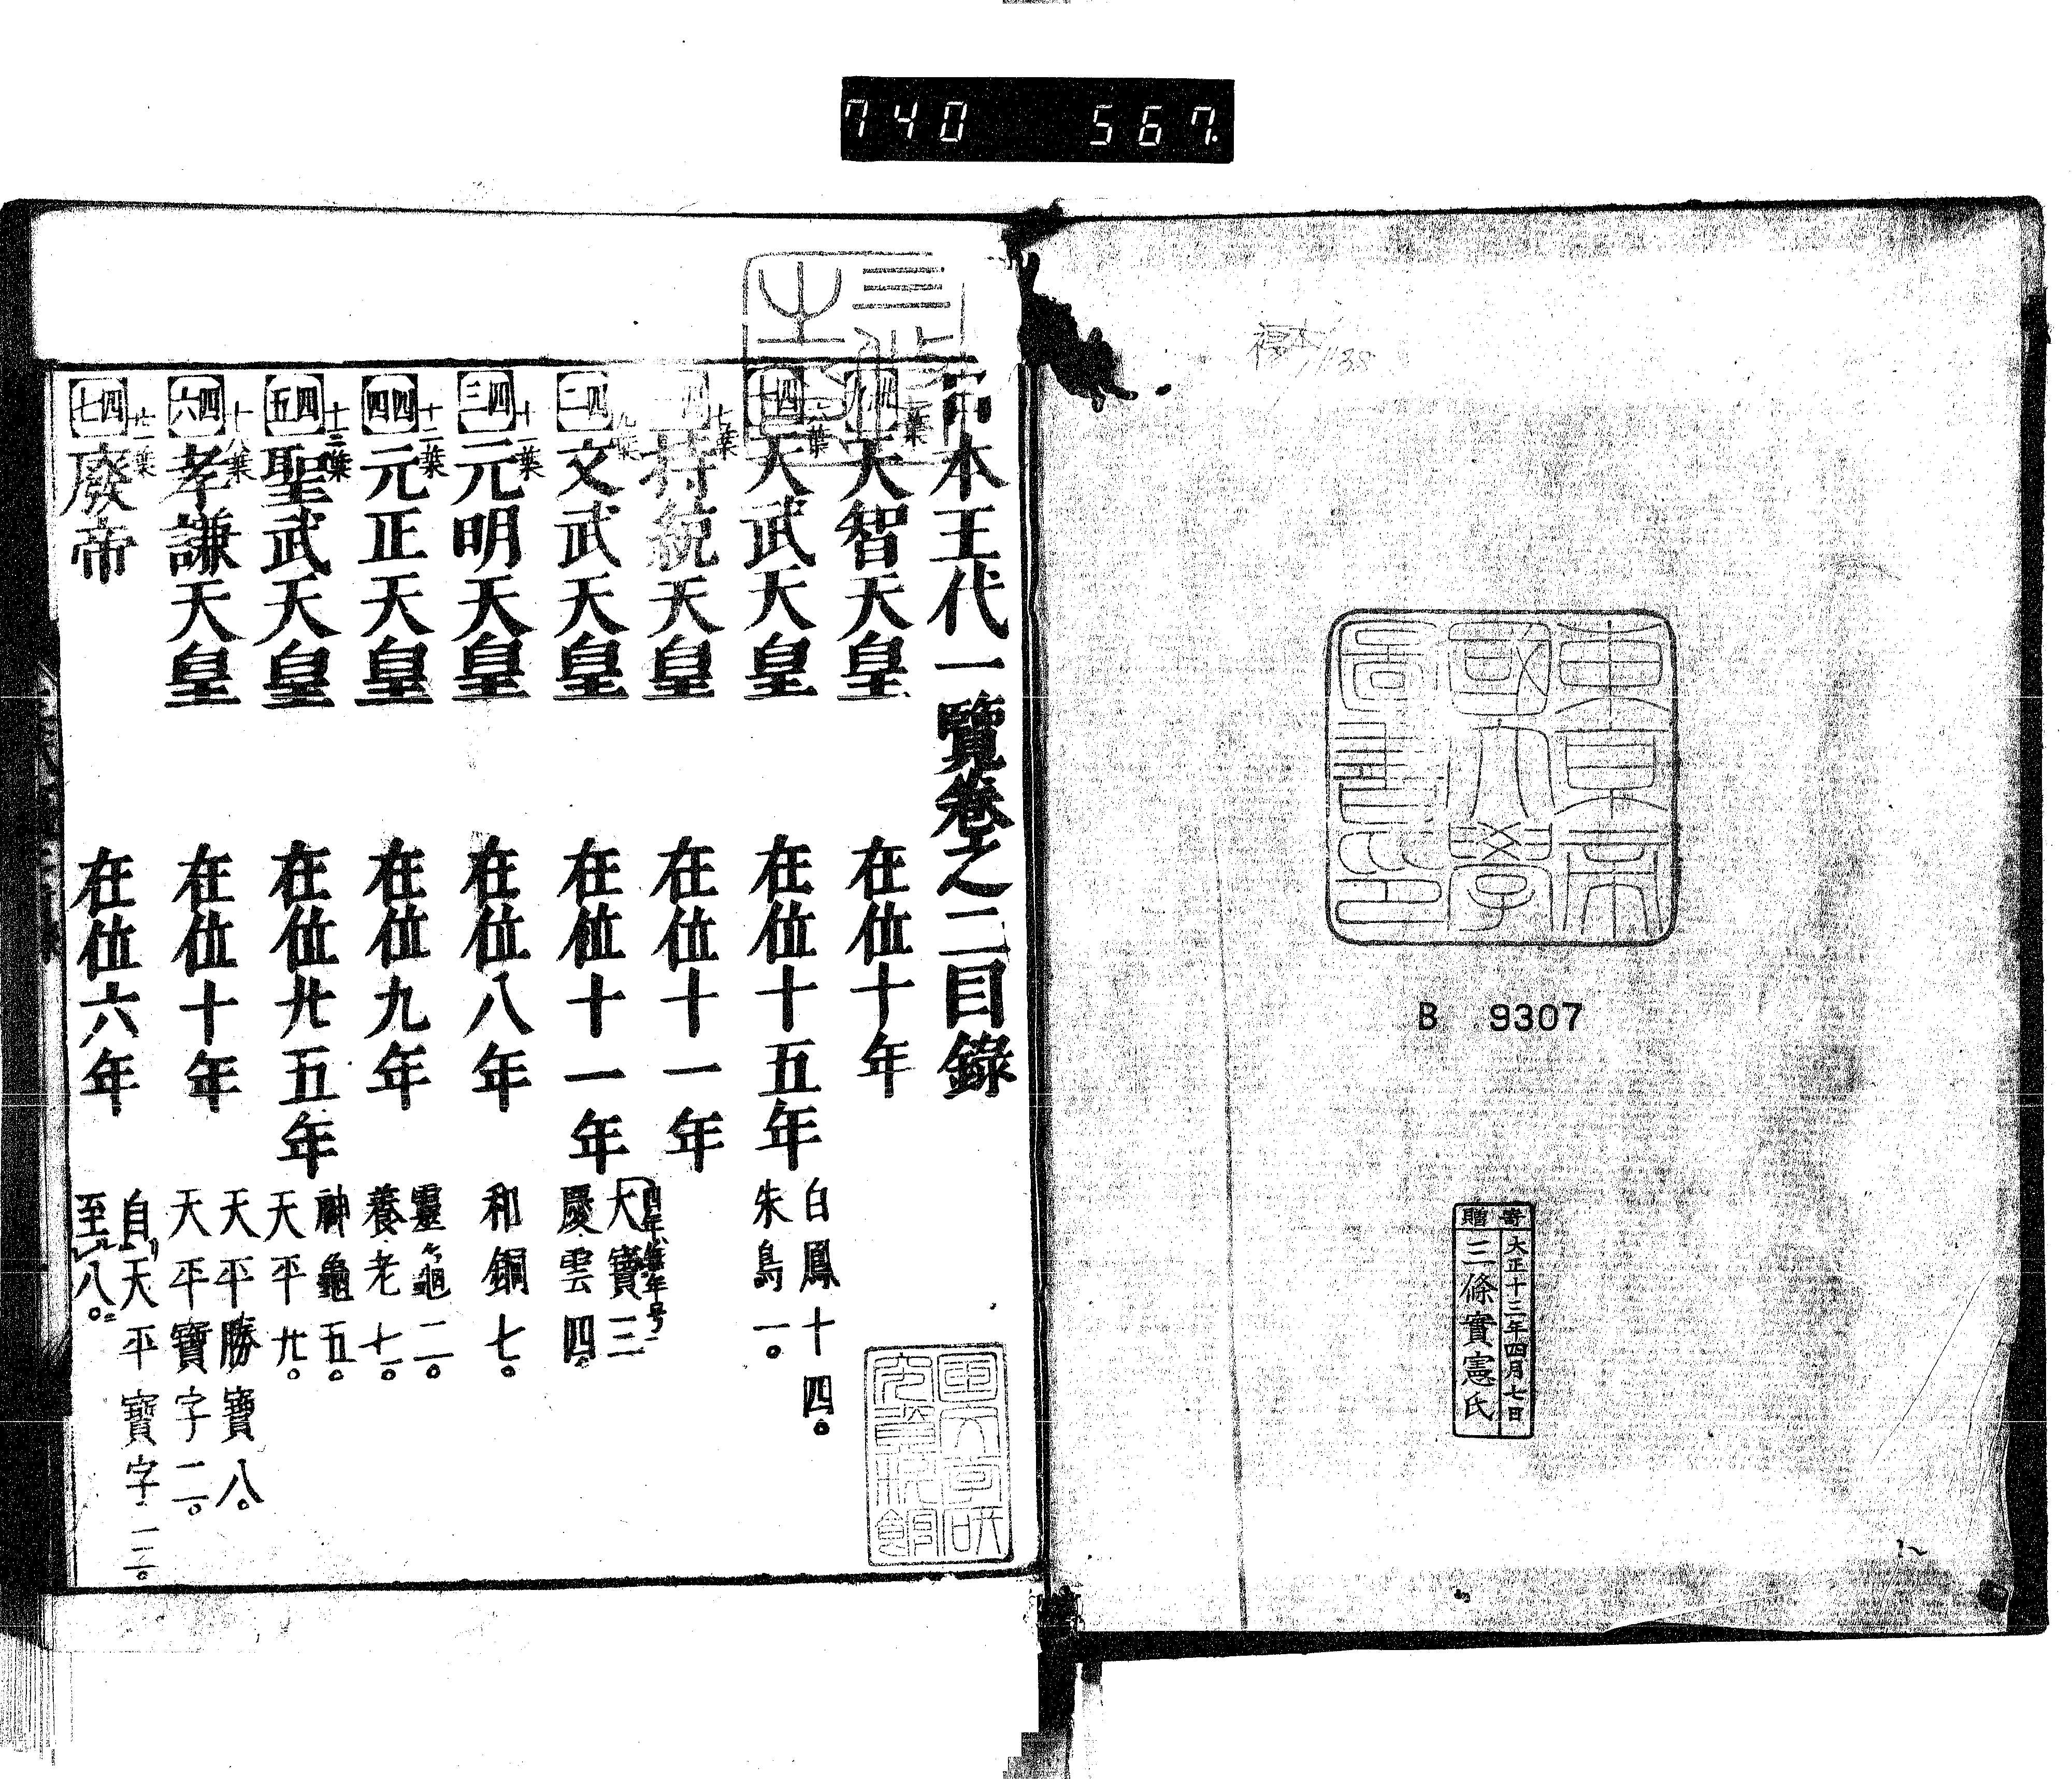 740 567.
複本
東京帝
國大學
圖書印
B 9307
寄贈
大正十三年四月七日
三條實憲氏
日本王代一覽卷之二目錄
天智天皇 在位十年
四十 天武天皇 在位十五年 白鳳十四。
朱鳥一。
七葉
持統天皇 在位十一年
四二 文武天皇 在位十一年 四年以無年号
大寶三
慶雲四。
十一葉
四三 元明天皇 在位八年 和銅七。
十二葉
四四 元正天皇 在位九年 靈龜二。
養老七。
十三葉
四五 聖武天皇 在位廿五年 神龜五。
天平廿。
十八葉
四六 孝謙天皇 在位十年 天平勝寶八。
天平寶字二。
廿一葉
四七 廢帝 在位六年 自天平寶字三。
至八。